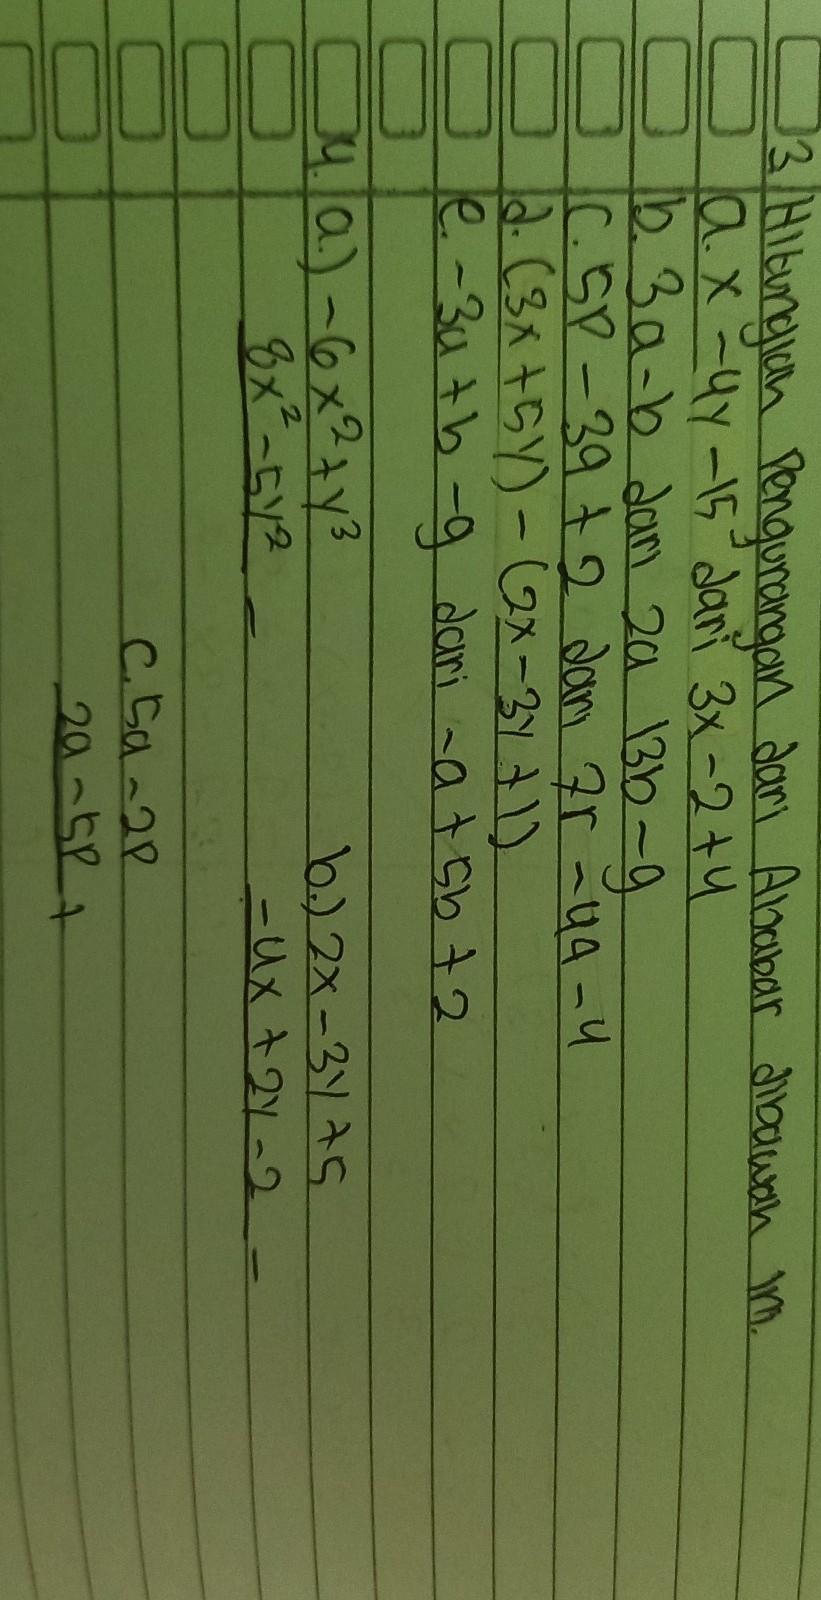 3. Hitunglah Pengurangan dari Aljabar dibawah ini.
a. x - 4y - 15 dari 3x - 2 + 4
b. 3a - b dari 2a 13b - 9
c. 5p - 3q + 2 dari 7r - 4q - 4
d. (3x + 5y) - (2x - 3y + 1)
e. -3a + b - 9 dari -a + 5b + 2
4. a.) -6x² + y³ b.) 2x - 3y + 5
8x² - 5y² - -4x + 2y - 2 -
c. 5a - 2p
2a - 5p +